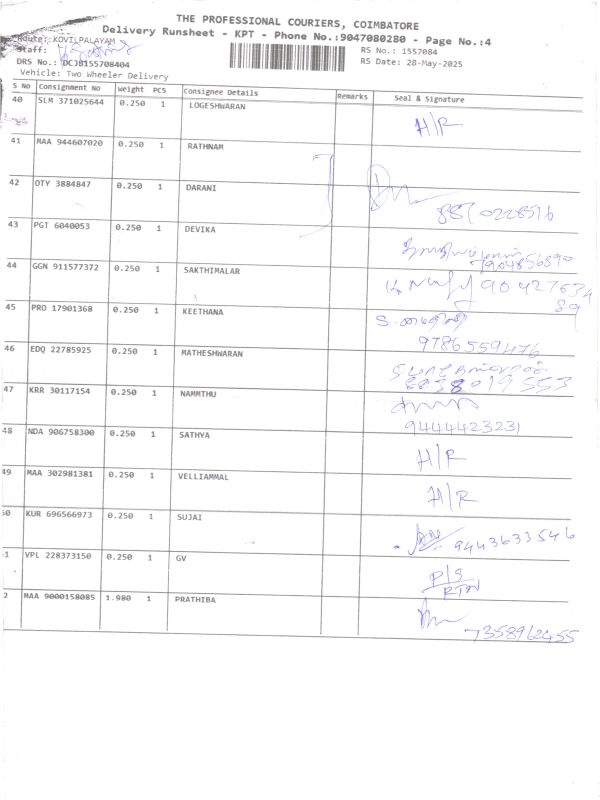 THE PROFESSIONAL COURIERS, COIMBATORE
Delivery Runsheet - KPT - Phone No.:9047080280 - Page No.:4
Route: KOVILPALAYAM
Staff:
DRS No.: DCJB155708404
Vehicle: Two Wheeler Delivery
RS No.: 1557084
RS Date: 28-May-2025
S No Consignment No Weight PCS Consignee Details Remarks Seal & Signature
40 SLM 371025644 0.250 1 LOGESHWARAN H/R
41 MAA 944607020 0.250 1 RATHNAM
42 OTY 3884847 0.250 1 DARANI
43 PGT 6040053 0.250 1 DEVIKA 7904856890
44 GGN 911577372 0.250 1 SAKTHIMALAR
45 PRO 17901368 0.250 1 KEETHANA
9786559476
46 EDQ 22785925 0.250 1 MATHESHWARAN
47 KRR 30117154 0.250 1 NAMMTHU
9444423231
48 NDA 906758300 0.250 1 SATHYA H/R
49 MAA 302981381 0.250 1 VELLIAMMAL H/R
50 KUR 696566973 0.250 1 SUJAI 9443633546
VPL 228373150 0.250 1 GV P/S
RTN
2 MAA 9000158085 1.980 1 PRATHIBA
7358962455